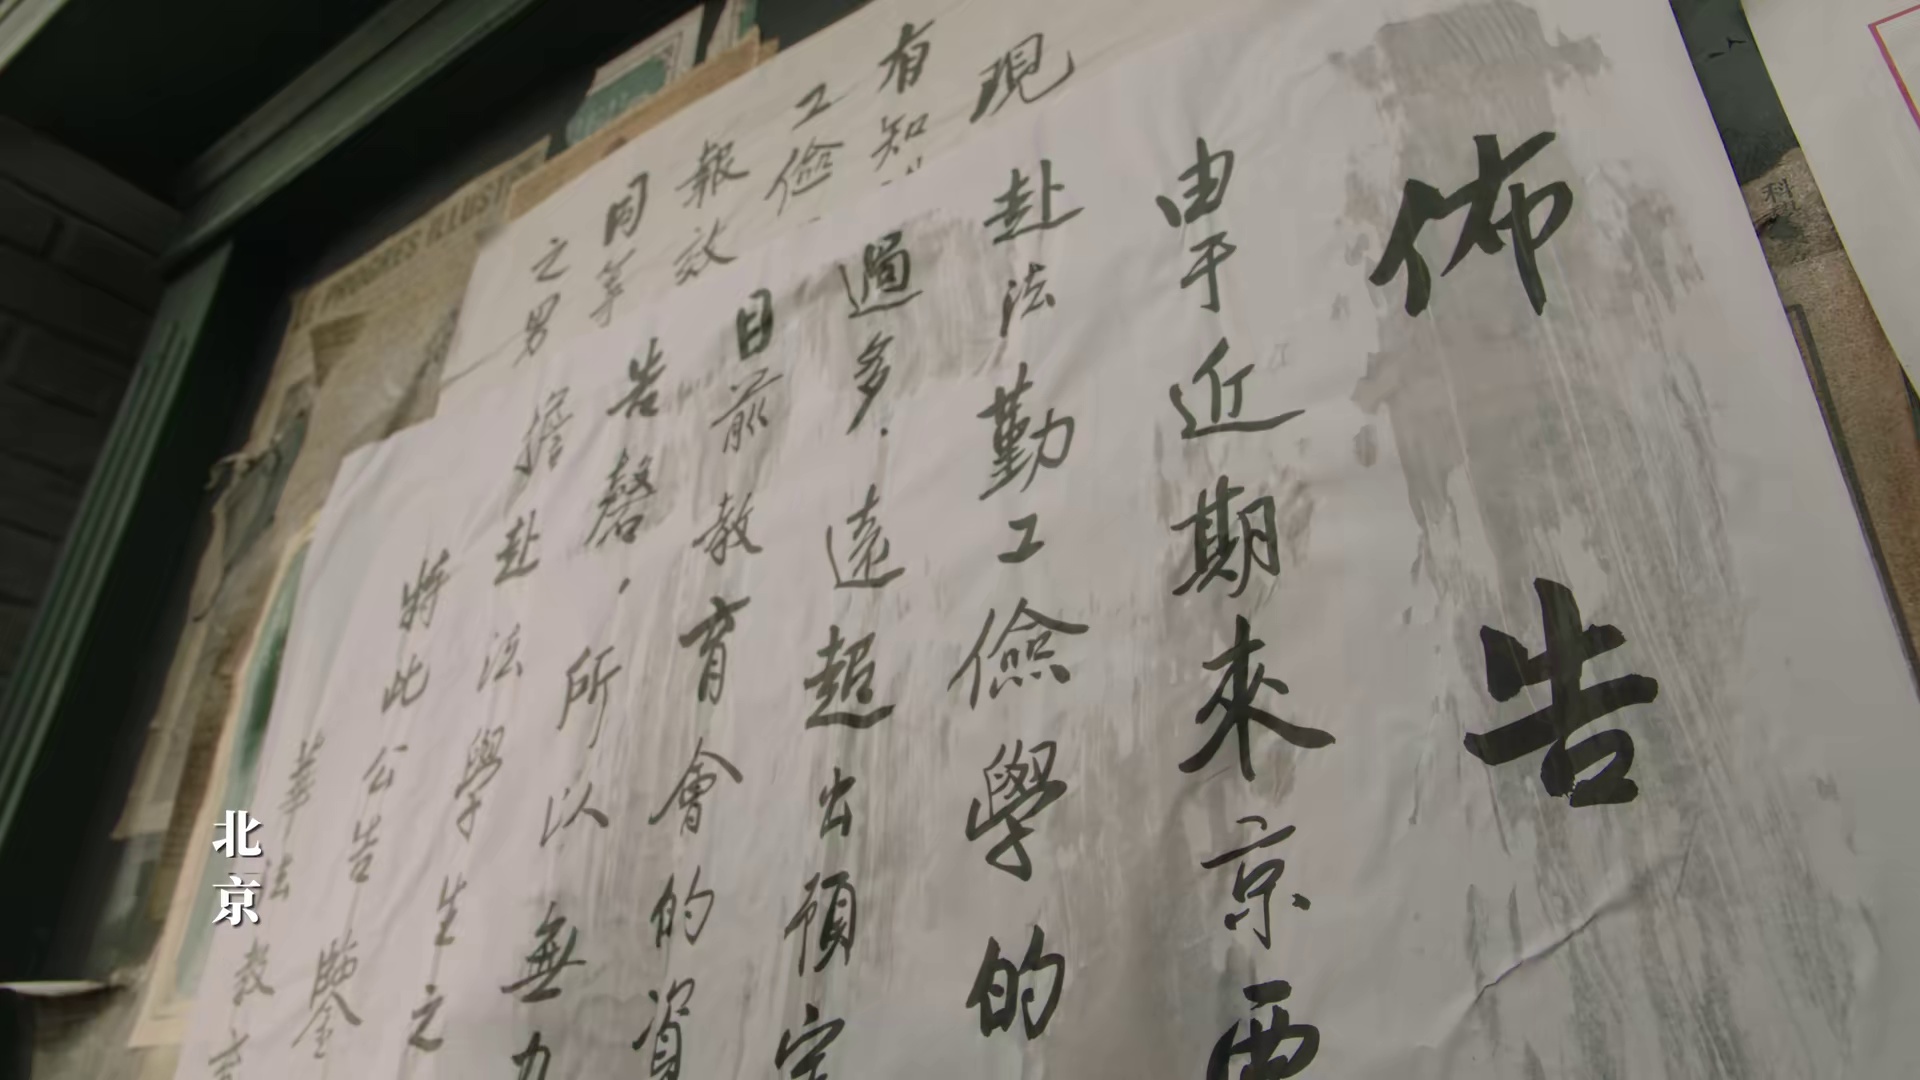 佈告
由于近期來京要
赴法勤工儉學的
過多.遠超出預定
目前教育會的資
告罄，所以無力
擔赴法學生之
特此公告
鑒
華法教育
現
有知
工儉
報效
同等
之男
北京
科
LE PROGRES ILLUST